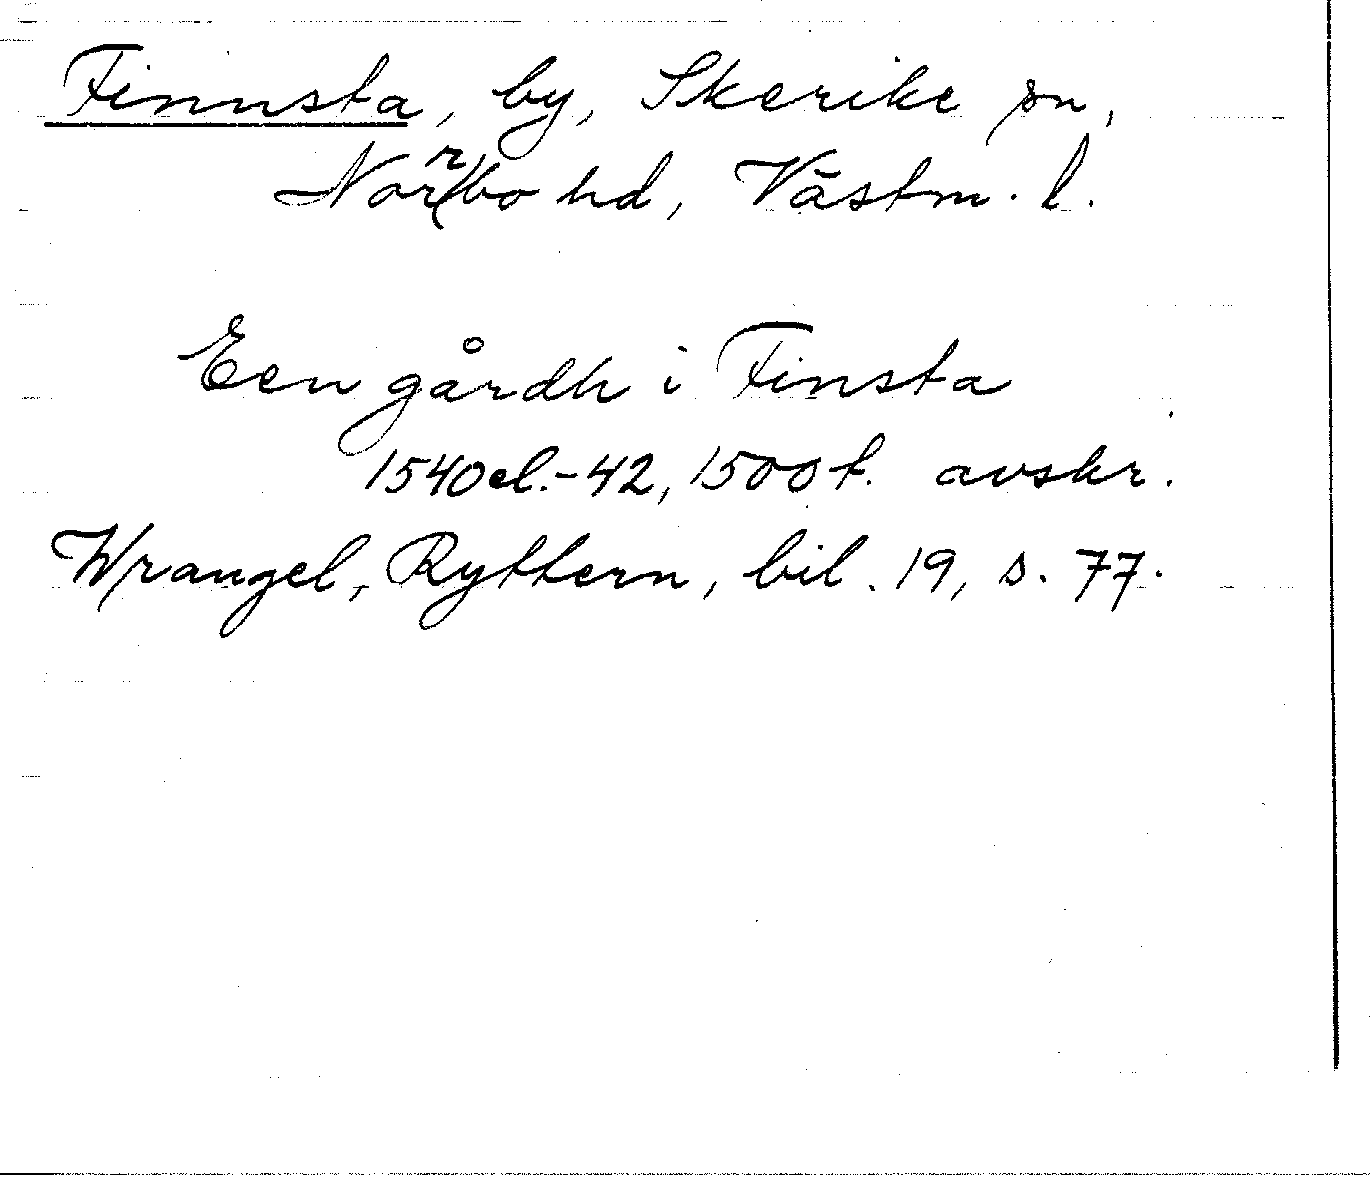 Finnsta, by, Skerike sn,
Norrbo hd, Västm. l.
Een gårdh i Finsta
1540 el.-42, 1500t. avskr.
Wrangel, Ryttern, bil. 19, s. 77.